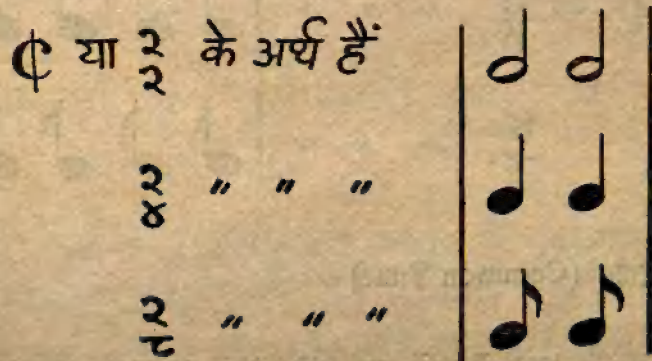 ¢ या २/२ के अर्थ हैं
२/४ " " "
२/८ " " "